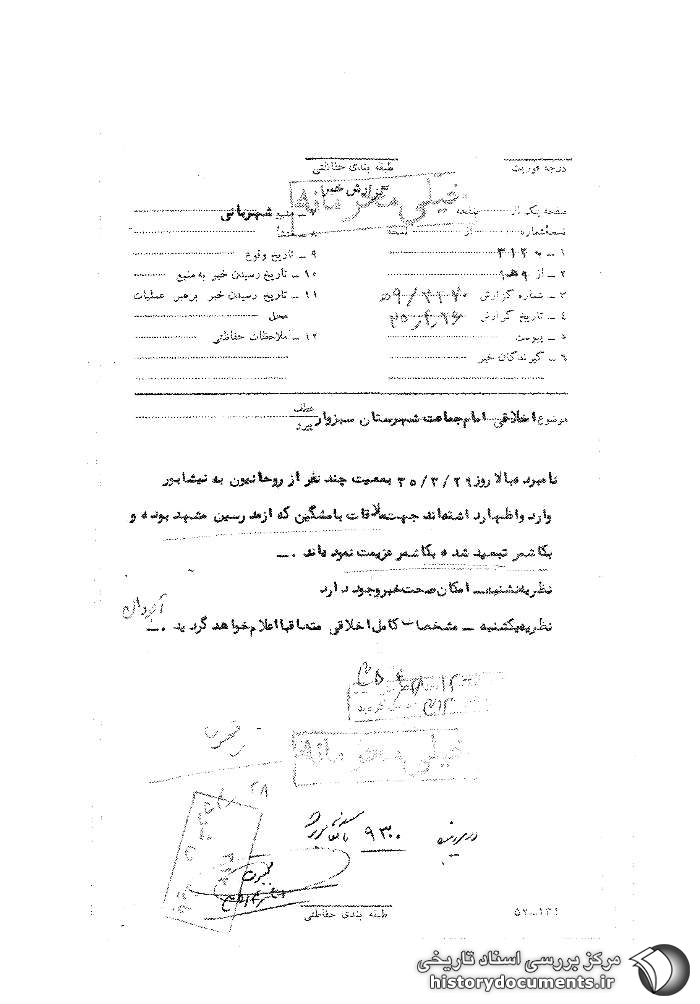 درجه فوریت
طبقه بندی حفاظتی
خیلی محرمانه
گزارش خبر
صفحه یک از صفحه
نسخه شماره از نسخه
۱ ــ ۳۱۲۰
۲ ــ از ۹ه۱
۳ ــ شماره گزارش
۴ ــ تاریخ گزارش
۵ ــ پیوست
۶ ــ گیرندگان خبر
۷ ــ منبع شهربانی
۸ ــ منشأ
۹ ــ تاریخ وقوع
۱۰ ــ تاریخ رسیدن خبر به منبع
۱۱ ــ تاریخ رسیدن خبر برهبر عملیات
محل
۱۲ ــ ملاحظات حفاظتی
موضوع اخلاقی امام جماعت شهرستان سبزوار
عطف
پیرو
نامبرده بالا روز ۳۵/۳/۲۹ بمعیت چند نفر از روحانیون به نیشابور
وارد و اظهار داشته اند جهت ملاقات با مشگین که از مدرسین مشهد بوده و
بکاشمر تبعید شده بکاشمر عزیمت نموده اند . ــ
نظریه شنبه ــ امکان صحت خبر وجود دارد
نظریه یکشنبه ــ مشخصات کامل اخلاقی متعاقبا اعلام خواهد گردید . ــ
خیلی محرمانه
۹۳۰۰
طبقه بندی حفاظتی
۵۲ــ۱۳۱
مرکز بررسی اسناد تاریخی
historydocuments.ir